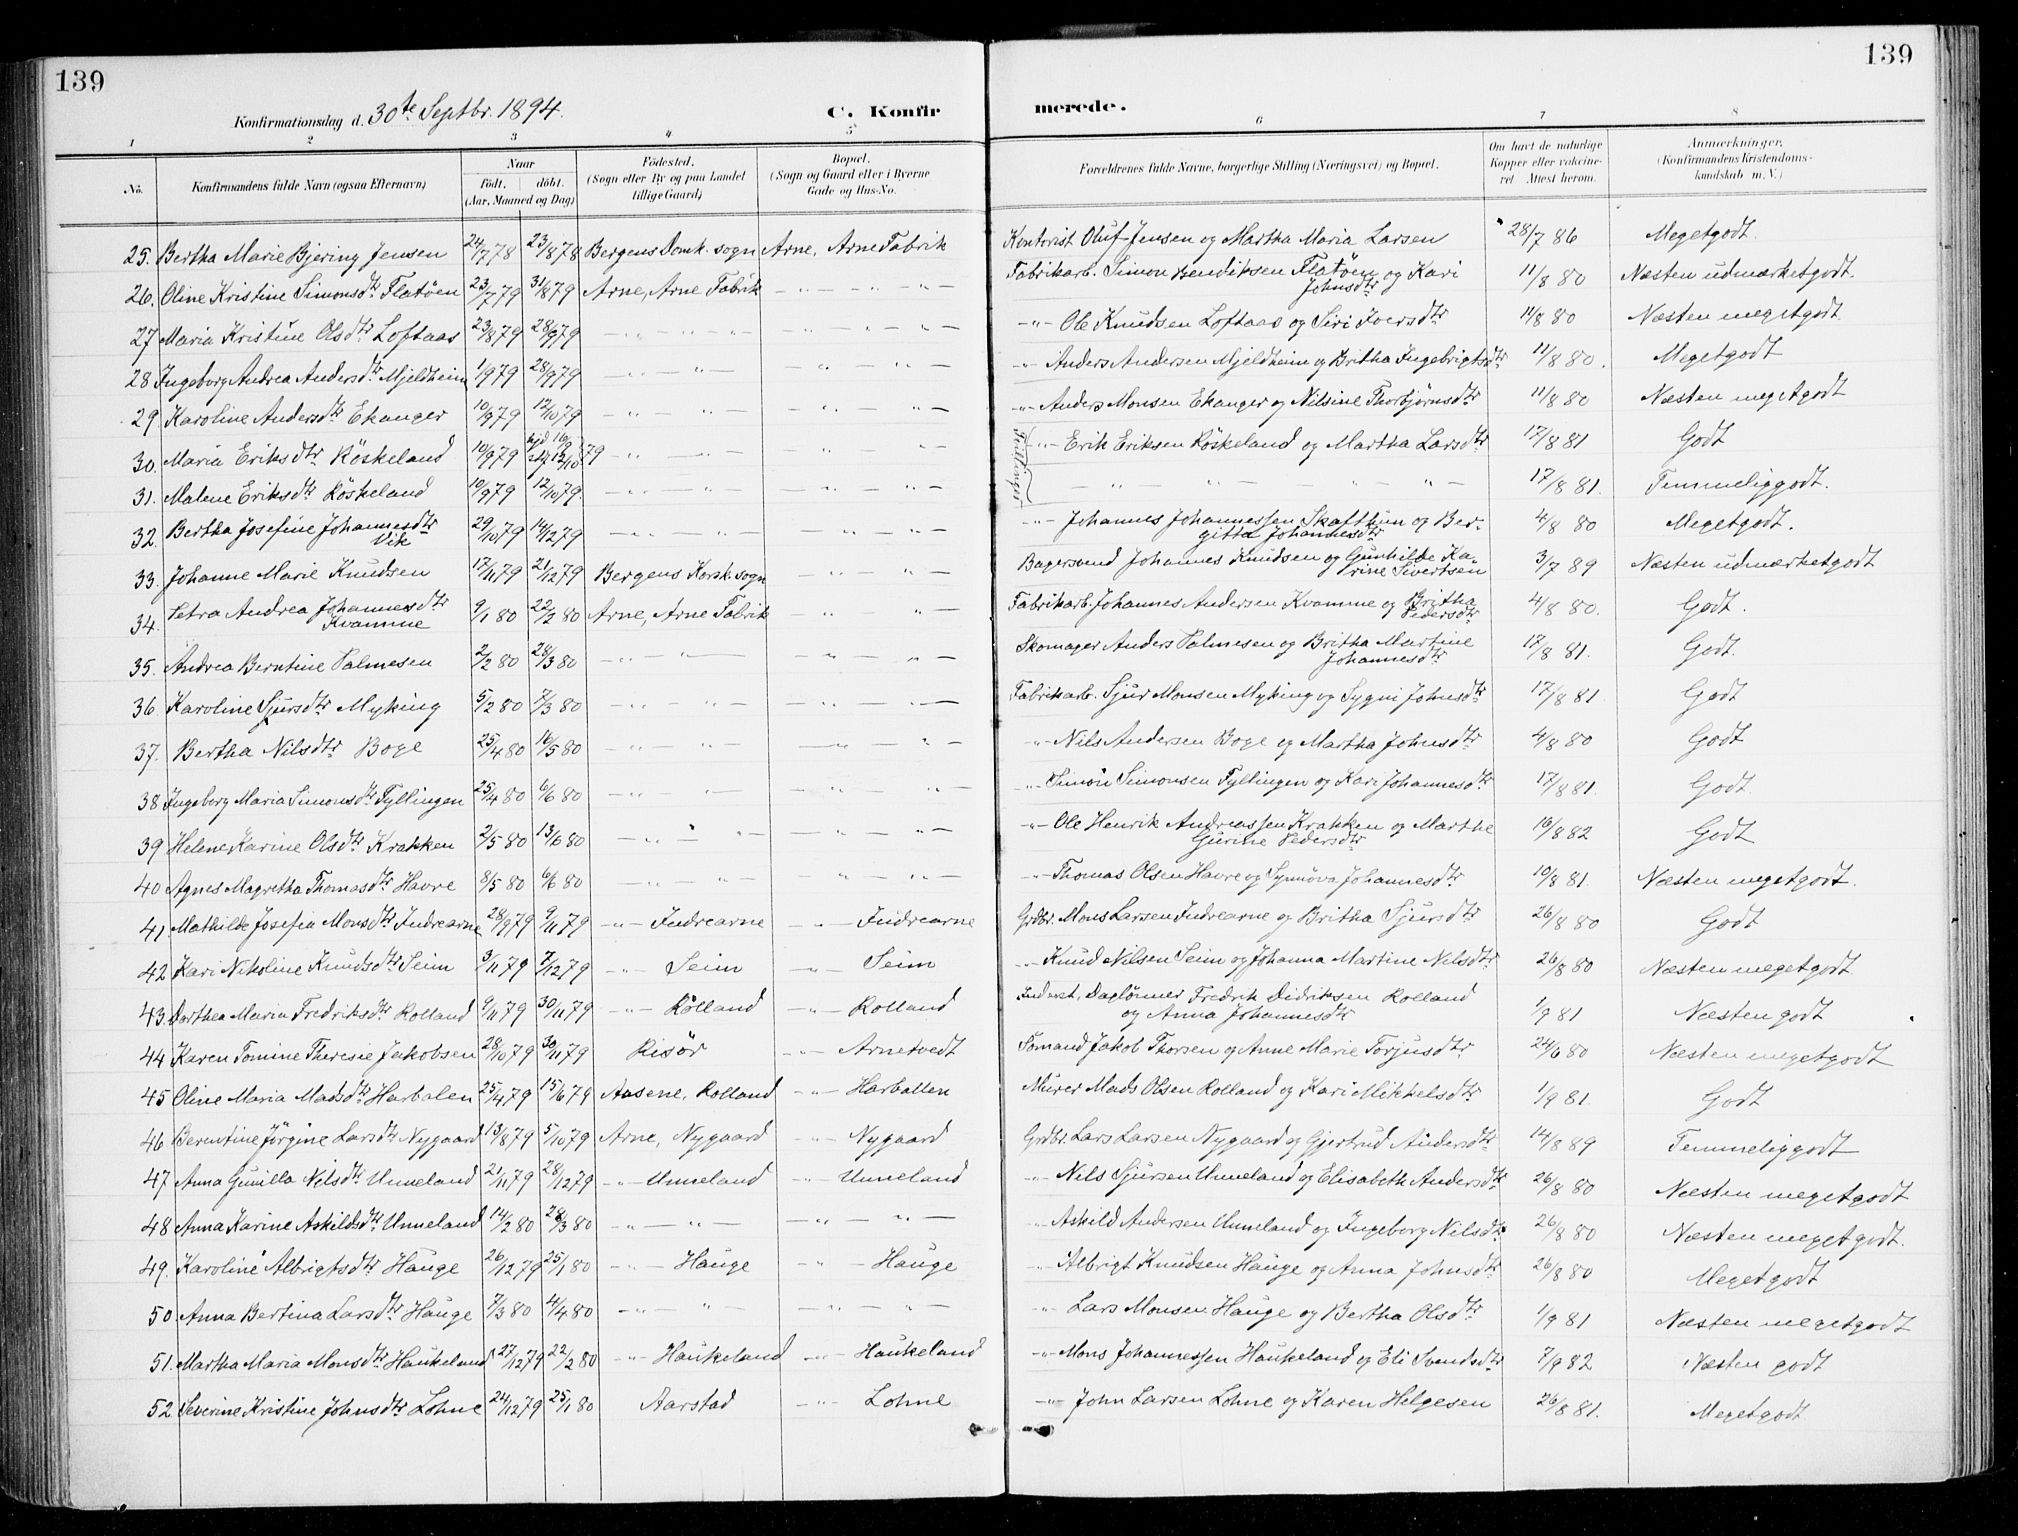 139
139
Konfirmationsdag d. 30te Septbr. 1894.
C. Konfirmerede.
1 2 3 4 5 6 7 8
No. Konfirmandens fulde Navn (ogsaa Efternavn) Naar födt. döbt. (Aar, Maaned og Dag) Födested. (Sogn eller By og paa Landet tillige Gaard) Bopæl. (Sogn og Gaard eller i Byerne Gade og Hus-No. Forældrenes fulde Navne, borgerlige Stilling (Næringsvei) og Bopæl. Om havt de naturlige Kopper eller vakcineret Attest herom. Anmærkninger. (Konfirmandens Kristendomskundskab m. V.)
25. Bertha Marie Bjering Jensen 24/7 78 23/8 78 Bergens Domk. sogn Arne, Arne Fabrik Kontorist Oluf Jensen og Martha Maria Larsen 28/7 86 Megetgodt.
26. Oline Kristine Simonsdtr Flatöen 23/7 79 31/8 79 Arne, Arne Fabrik — " — " — Fabrikarb. Simon Bendiksen Flatöen og Kari Johnsdtr 11/8 80 Næsten udmærketgodt.
27 Maria Kristine Olsdtr Loftaas 23/8 79 28/9 79 — " — " — — " — " — —"— Ole Knudsen Loftaas og Siri Iversdtr 11/8 80 Næsten megetgodt.
28 Ingeborg Andrea Andersdtr Mjeldheim 1/9 79 28/9 79 — " — " — — " — " — —"— Anders Andersen Mjeldheim og Britha Ingebrigtsdtr 11/8 80. Megetgodt
29 Karoline Andersdtr Ekanger 10/9 79 12/10 79 — " — " — — " — " — —"— Anders Monsen Ekanger og Nilsine Thorbjörnsdtr 11/8 80 Næsten megetgodt
30. Maria Eriksdtr Röskeland 10/9 79 12/10 79 — " — " — " — Tvillinger —"— Erik Eriksen Röskeland og Martha Larsdtr 17/8 81 Godt
31. Malene Eriksdtr Röskeland 10/9 79 12/10 79. — " — " — — " — " — — " — " — " — " — 17/8 81. Temmeliggodt.
32. Bertha Josefine Johannesdtr Vik 29/10 79 14/12 79 — " — " — — " — " — —"— Johannes Johannessen Skafthun og Bergitta Johannesdtr 4/8 80 Megetgodt.
33. Johanne Marie Knudsen 17/11 79 21/12 79 Bergens Korsk. sogn — " — " — Bagersvend Johannes Knudsen og Gunhilde Karine Sivertsen 3/7 89 Næsten udmærketgodt
34. Petra Andrea Johannesdtr Kvamme 9/1 80 22/2 80 Arne, Arne Fabrik — " — " — Fabrikarb. Johannes Andersen Kvamme og Britha Pedersdtr 4/8 80. Godt.
35. Andrea Berntine Palmesen 2/2 80 28/3 80 — " — " — — " — " — Skomager Anders Palmesen og Britha Martine Johannesdtr 17/8 81. Godt.
36 Karoline Sjursdtr Myking 5/2 80 7/3 80 — " — " — — " — " — Fabrikarb. Sjur Monsen Myking og Sygni Johnsdtr 17/8 81. Godt
37. Bertha Nilsdtr Boge 25/4 80 16/5 80 — " — " — — " — " — —"— Nils Andersen Boge og Martha Johnsdtr 4/8 80 Godt
38 Ingeborg Maria Simonsdtr Tyllingen 25/4 80 6/6 80 — " — " — — " — " — —"— Simon Simonsen Tyllingen og Kari Johannesdtr 17/8 81. Godt.
39 Helene Karine Olsdtr Krakken 2/5 80 13/6 80 — " — " — — " — " — —"— Ole Henrik Andreassen Krakken og Marthe Gurine Pedersdtr 16/8 82 Godt
40 Agnes Magretha Thomasdtr Havre 8/5 80 6/6 80 — " — " — — " — " — —"— Thomas Olsen Havre og Synnöva Johannesdtr 10/8 81. Næsten megetgodt.
41 Mathilde Josefia Monsdtr Indrearne 28/9 79 9/11 79 —"— Indrearne —"— Indrearne Grdbr. Mons Larsen Indrearne og Britha Sjursdtr 26/8 80 Godt
42 Kari Nikoline Knudsdtr Seim 3/11 79 7/12 79 —"— Seim —"— Seim —"— Knud Nilsen Seim og Johanna Martine Nilsdtr 26/8 80 Næsten megetgodt
43. Dorthea Maria Fredriksdtr Rolland 9/11 79 30/11 79 —"— Rolland —"— Rolland Inderst, Daglönner Fredrik Didriksen Rolland og Anna Johannesdtr 1/9 81 Næsten godt
44 Karen Tomine Theresie Jakobsen 28/10 79 30/11 79 Risör —"— Arnetvedt Sömand Jakob Thorsen og Anne Marie Torjusdtr 24/6 80 Næsten megetgodt
45 Oline Maria Madsdtr Harbaken 25/4 79 15/6 79 Aasene, Rolland —"— Harbatten Murer Mads Olsen Rolland og Kari Mikkelsdtr 1/9 81. Godt
46 Berentine Jörgine Larsdtr Nygaard 13/8 79 5/10 79 Arne, Nygaard —"— Nygaard Grdbr. Lars Larsen Nygaard og Gjertrud Andersdtr 14/8 89 Temmeliggodt
47 Anna Gunilla Nilsdtr Unneland 21/11 79 28/12 79 —"— Unneland —"— Unneland —"— Nils Sjursen Unneland og Elisabeth Andersdtr 26/8 80 Næsten megetgodt
48 Anna Karine Askildsdtr Unneland 14/2 80 28/3 80 —"— " — — " — " — —"— Askild Andersen Unneland og Ingeborg Nilsdtr 26/8 80 Næsten megetgodt.
49. Karoline Albrigtsdtr Hauge 26/12 79 25/1 80 —"— Hauge —"— Hauge —"— Albrigt Knudsen Hauge og Anna Johnsdtr 26/8 80 Megetgodt
50. Anna Bertina Larsdtr Hauge 7/3 80 4/4 80 —"— " — — " — " — —"— Lars Monsen Hauge og Bertha Olsdtr 1/9 81 Næsten megetgodt
51. Martha Maria Monsdtr Haukeland 27/12 79 22/2 80 —"— Haukeland —"— Haukeland —"— Mons Johannessen Haukeland og Eli Svendsdtr 7/9 82 Næsten godt
52 Severine Kristine Johnsdtr Lohne 24/12 79 25/1 80 Aarstad —"— Lohne —"— John Larsen Lohne og Karen Helgesen 26/8 81. Megetgodt